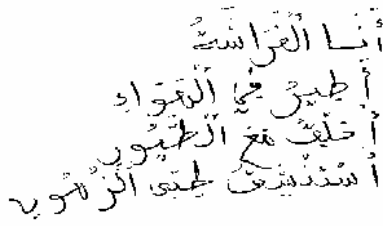 أَنَا الْفَرَاشَةُ
أَطِيرُ فِي الْهَوَاءِ
أُحَلِّقُ مَعَ الطُّيُورِ
أَسْتَنْشِقُ الزُّهُورِ